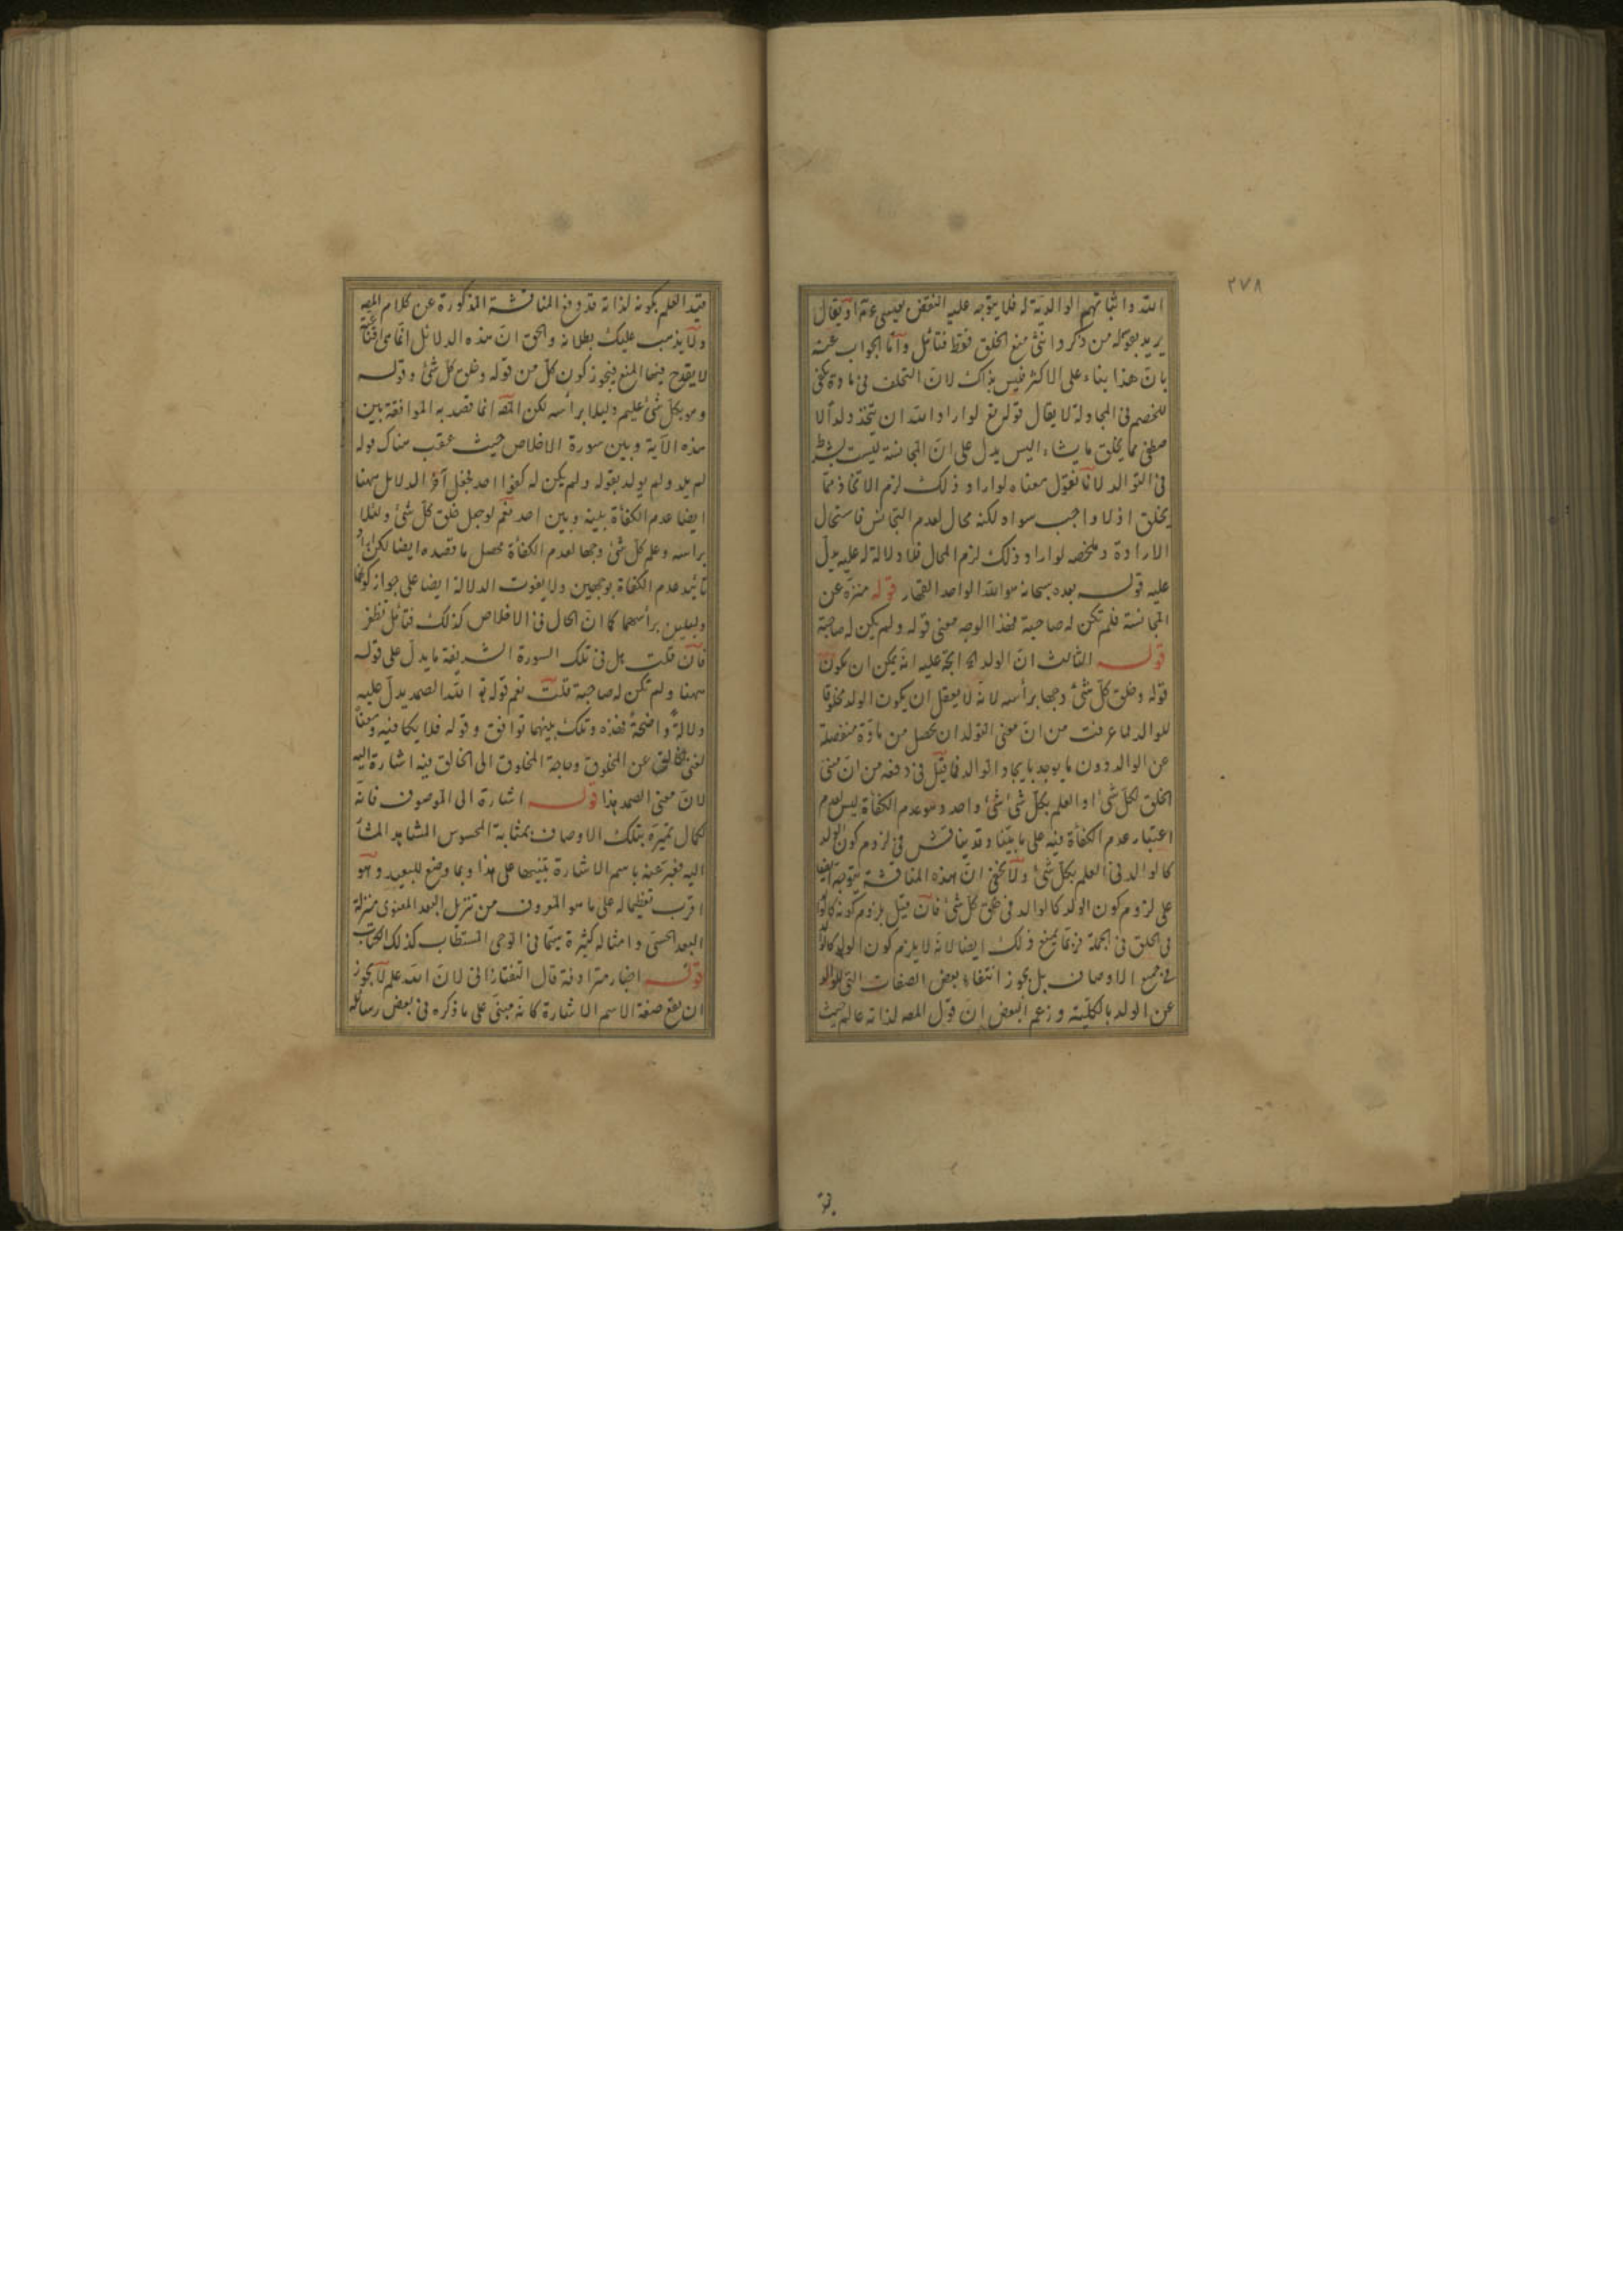 ٢٧٨
الله واثباتهم الوالدية له فلا يتوجه عليه النقض بعيسى عم او يقال
يريد بقوله من ذكر وانثى منع الخلق فقط فتأمل واما الجواب عنه
بان هذا بناء على الاكثر فليس بذاك لان التخلف فى مادة تكفى
للخصم فى المجادلة لا يقال قوله تع لو اراد الله ان يتخذ ولدا لا
صطفى مما يخلق ما يشاء اليس يدل على ان المجانسة ليست بشرط
فى التوالد لانا نقول معناه لو اراد ذلك لزم الاتخاذ مما
يخلق اذ لا واجب سواه لكنه محال لعدم التجانس فاستحال
الارادة وملخصه لو اراد ذلك لزم المحال فلا دلالة له عليه يدل
عليه قوله بعده سبحانه هو الله الواحد القهار قوله منزه عن
المجانسة فلم تكن له صاحبة فهذا الوجه معنى قوله ولم يكن له صاحبة
قوله الثالث ان الولد الخ اتجه عليه انه يمكن ان يكون
قوله وخلق كل شئ وجها برأسه لانه لا يعقل ان يكون الولد مخلوقا
للوالد لما عرفت من ان معنى التولد ان يحصل من مادة منفصلة
عن الوالد دون ما يوجد بايجاد الوالد فما قيل فى دفعه من ان مبنى
الخلق لكل شئ او العلم بكل شئ شئ واحد وهو عدم الكفأة ليس لعدم
اعتبار عدم الكفأة فيه على ما بينا وقد يناقش فى لزوم كون الولد
كالوالد فى العلم بكل شئ ولا يخفى ان هذه المناقشة يتوجه ايضا
على لزوم كون الولد كالوالد فى خلق كل شئ فان قيل يلزوم كونه كالوالد
فى الخلق فى الجملة فربما يمنع ذلك ايضا لانه لا يلزم كون الولد كالوالد
فى جميع الاوصاف بل يجوز انتفاء بعض الصفات التى للوالد
عن الولد بالكلية وزعم البعض ان قول المصه لذاته عالم حيث
قيد
قيد العلم بكونه لذاته قد دفع المناقشة المذكورة عن كلام المصه
ولا يذهب عليك بطلانه والحق ان هذه الدلائل انما هى اقناعية
لا يقدح فيها المنع فيجوز كون كل من قوله وخلق كل شئ وقوله
وهو بكل شئ عليم دليلا برأسه لكن المصه انما قصد به الموافقة بين
هذه الآية وبين سورة الاخلاص حيث عقب هناك قوله
لم يلد ولم يولد بقوله ولم يكن له كفوا احد فجعل آخر الدلائل ههنا
ايضا عدم الكفأة بينه وبين احد نعم لو جعل خلق كل شئ دليلا
برأسه وعلم كل شئ وجها لعدم الكفأة محصل ما قصده ايضا لكن اراد
تأييد عدم الكفأة بوجهين ولا يفوت الدلالة ايضا على جواز كونهما
دليلين برأسهما كما ان الحال فى الاخلاص كذلك فتأمل تظفر
فان قلت هل فى تلك السورة الشريفة ما يدل على قوله
ههنا ولم تكن له صاحبة قلت نعم قوله تع الله الصمد يدل عليه
دلالة واضحة فهذه وتلك بينهما توافق وقوله فلا يكافيه
لغنى الخالق عن المخلوق وحاجة المخلوق الى الخالق فيه اشارة اليه
لان معنى الصمد هذا قوله اشارة الى الموصوف فانه
لكمال تميزه بتلك الاوصاف بمثابة المحسوس المشاهد المشا
اليه فعبر عنه باسم الاشارة تنبيها على هذا وبما وضع للبعيد وهو
اقرب تعظيما له على ما هو المعروف من تنزيل البعد المعنوى منزلة
البعد الحسى وامثاله كثيرة سيما فى الوحى المستطاب كذلك الكتاب
قوله اخبار مترادفة قال التفتازانى لان الله علم لا يجوز
ان يقع صفة الاسم الاشارة كانه مبنى على ما ذكره فى بعض رسائله